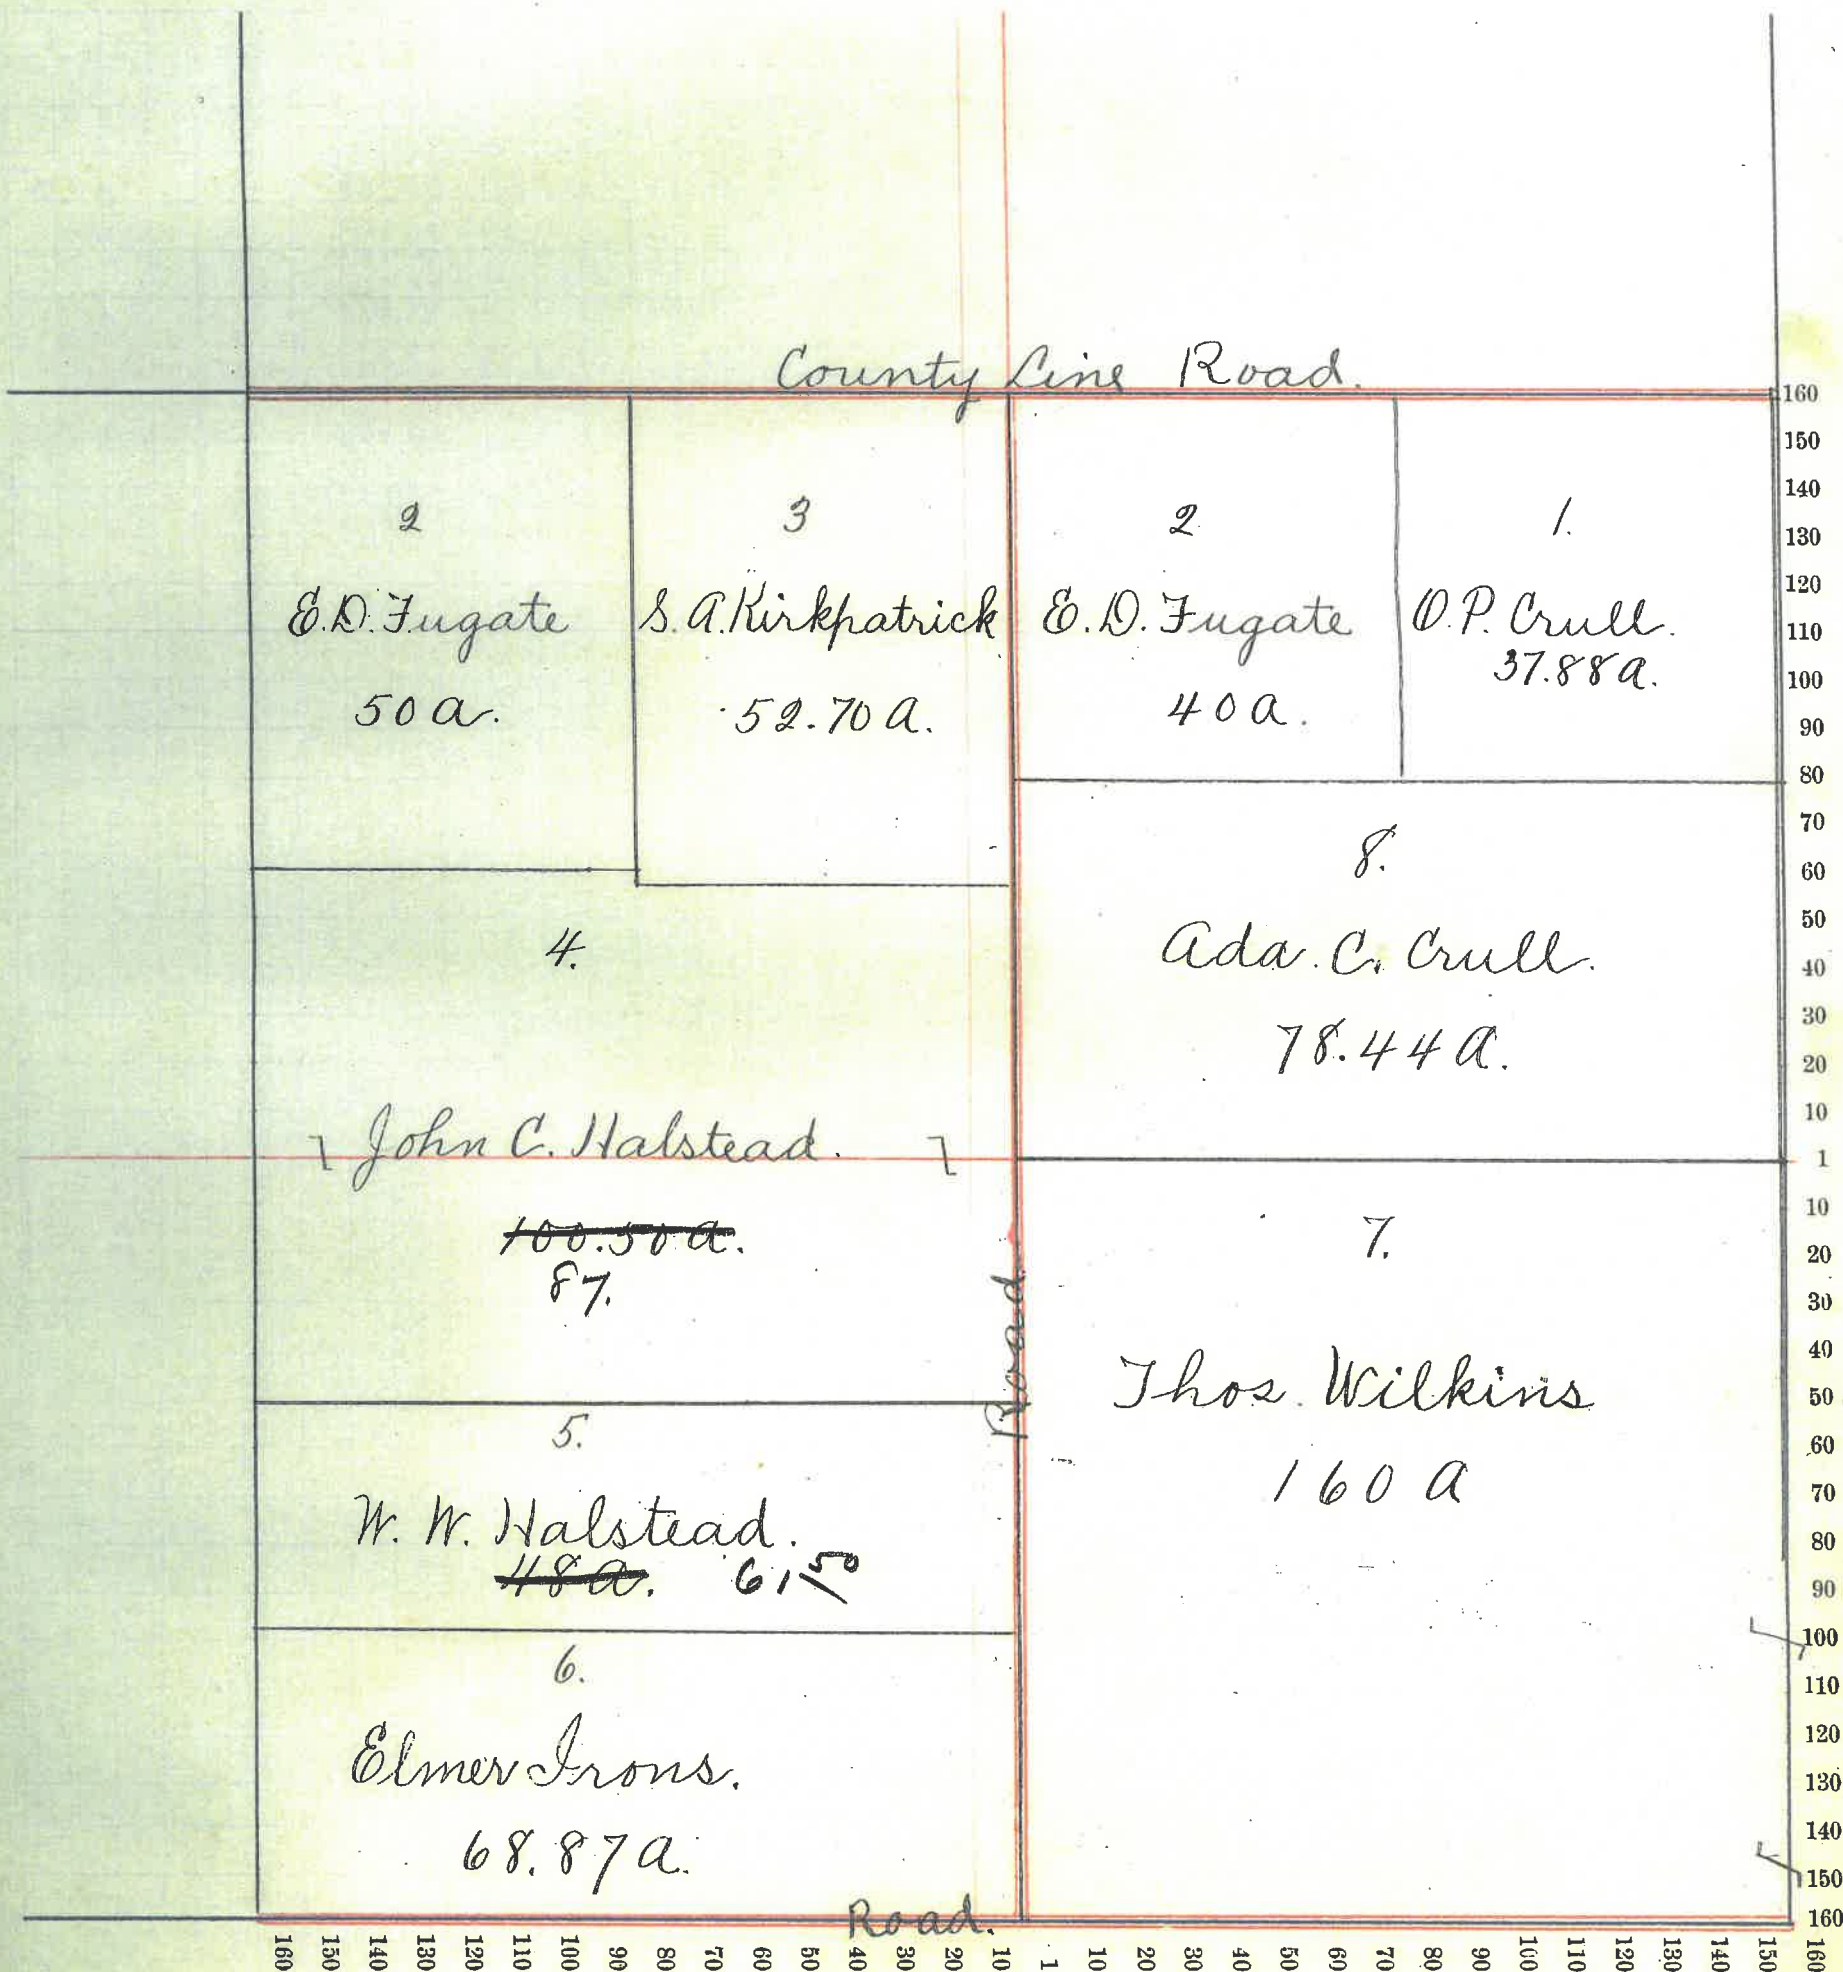 County Line Road.
2
E.D. Fugate
50 a.
3
S. A. Kirkpatrick
52.70 A.
2
E. D. Fugate
40 a.
1.
O. P. Crull.
37.88 a.
8.
Ada. C. Crull.
78.44 A.
4.
John C. Halstead.
100.50 a.
87.
Road
7.
Thos. Wilkins
160 A
5.
W. W. Halstead.
48 a. 61 50
6.
Elmer Irons.
68.87 a.
Road.
160
150
140
130
120
110
100
90
80
70
60
50
40
30
20
10
1
10
20
30
40
50
60
70
80
90
100
110
120
130
140
150
160
160 150 140 130 120 110 100 90 80 70 60 50 40 30 20 10 1 10 20 30 40 50 60 70 80 90 100 110 120 130 140 150 160